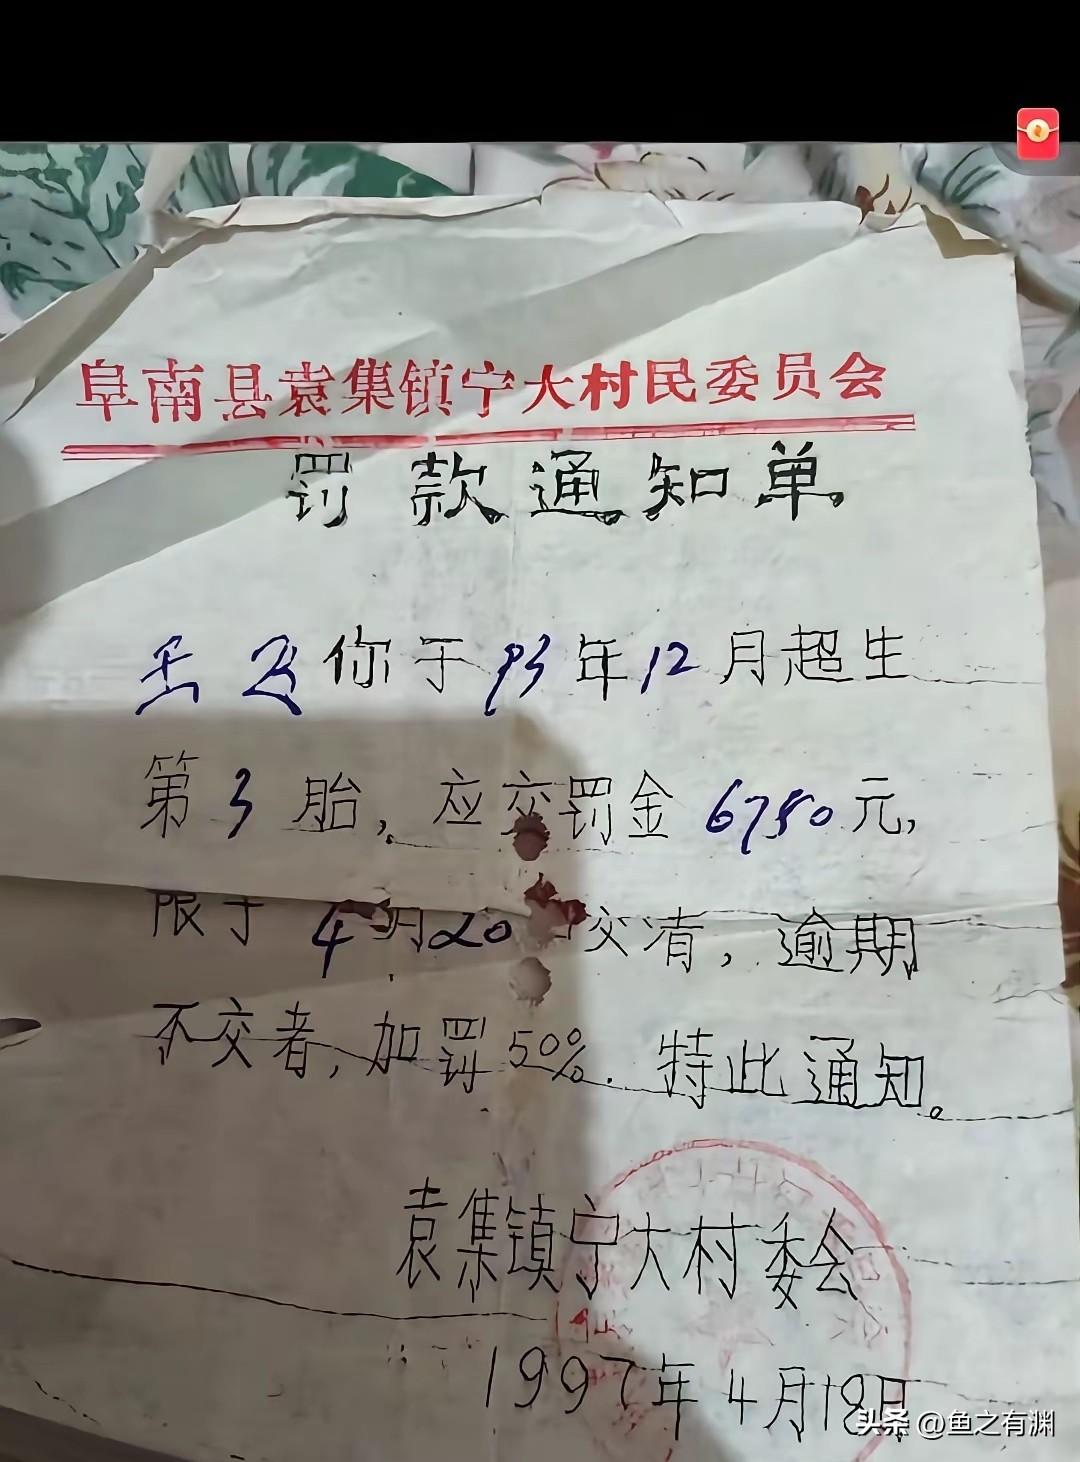 阜南县袁集镇宁大村民委员会
罚款通知单
王飞你于93年12月超生
第3胎，应交罚金6750元，
限于4月20日交清，逾期
不交者，加罚50%．特此通知。
袁集镇宁大村委会
1997年4月18日
头条 @鱼之有渊